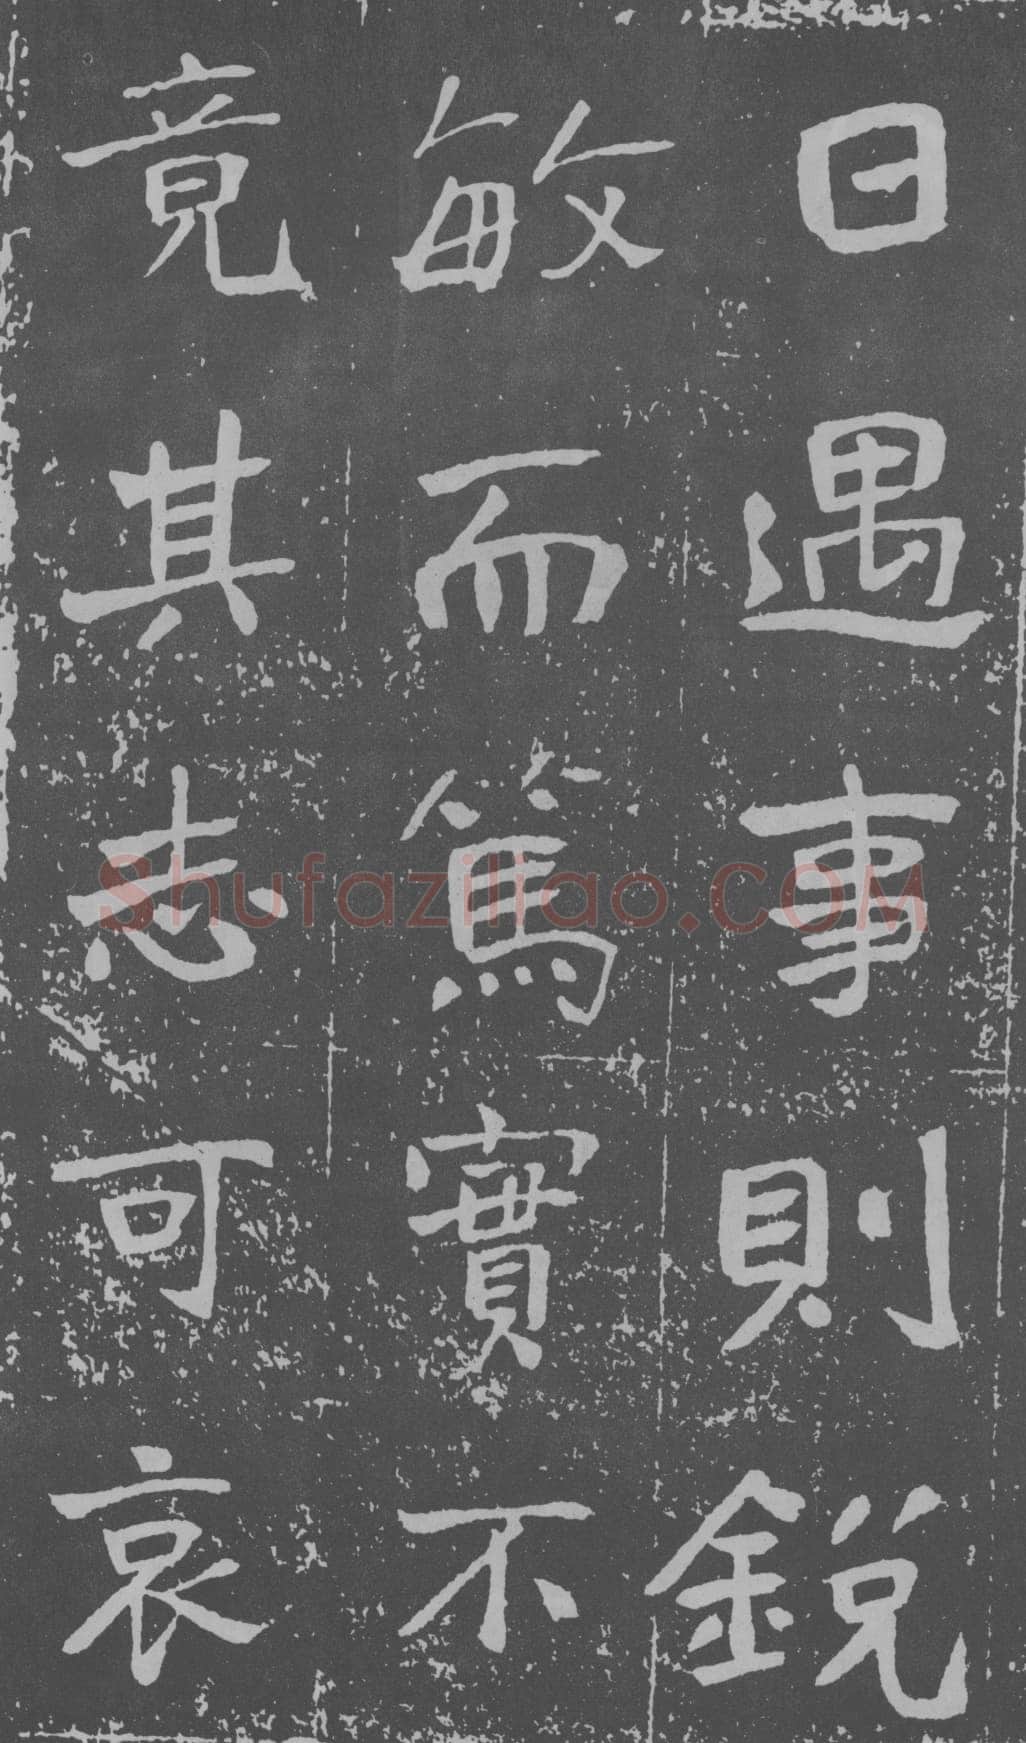 日遇事則銳
敏而篤實不
竟其志可哀
Shufaziliao.COM